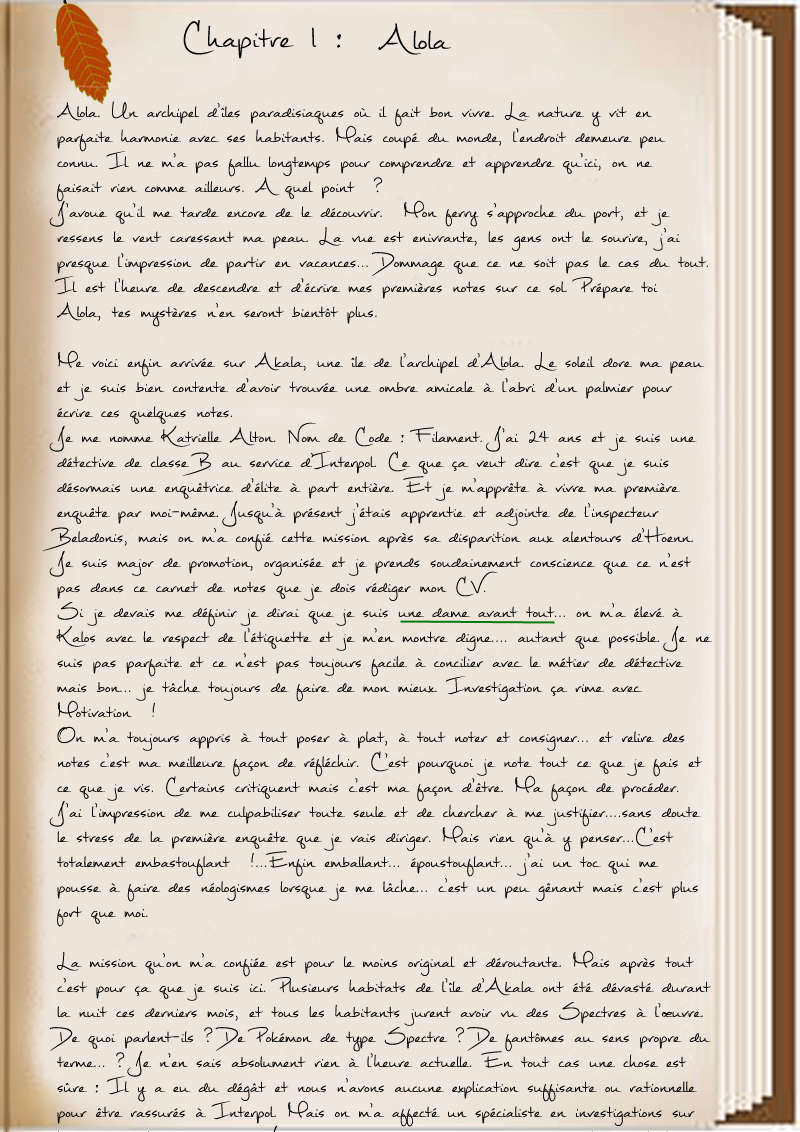 Chapitre 1 : Alola
Alola. Un archipel d'îles paradisiaques où il fait bon vivre. La nature y vit en
parfaite harmonie avec ses habitants. Mais coupé du monde, l'endroit demeure peu
connu. Il ne m'a pas fallu longtemps pour comprendre et apprendre qu'ici, on ne
faisait rien comme ailleurs. A quel point ?
J'avoue qu'il me tarde encore de le découvrir. Mon ferry s'approche du port, et je
ressens le vent caressant ma peau. La vue est enivrante, les gens ont le sourire, j'ai
presque l'impression de partir en vacances... Dommage que ce ne soit pas le cas du tout.
Il est l'heure de descendre et d'écrire mes premières notes sur ce sol. Prépare toi
Alola, tes mystères n'en seront bientôt plus.
Me voici enfin arrivée sur Akala, une île de l'archipel d'Alola. Le soleil dore ma peau
et je suis bien contente d'avoir trouvée une ombre amicale à l'abri d'un palmier pour
écrire ces quelques notes.
Je me nomme Katrielle Alton. Nom de Code : Filament. J'ai 24 ans et je suis une
détective de classe B au service d'Interpol. Ce que ça veut dire c'est que je suis
désormais une enquêtrice d'élite à part entière. Et je m'apprête à vivre ma première
enquête par moi-même. Jusqu'à présent j'étais apprentie et adjointe de l'inspecteur
Beladonis, mais on m'a confié cette mission après sa disparition aux alentours d'Hoenn.
Je suis major de promotion, organisée et je prends soudainement conscience que ce n'est
pas dans ce carnet de notes que je dois rédiger mon CV.
Si je devais me définir je dirai que je suis une dame avant tout... on m'a élevé à
Kalos avec le respect de l'étiquette et je m'en montre digne.... autant que possible. Je ne
suis pas parfaite et ce n'est pas toujours facile à concilier avec le métier de détective
mais bon... je tâche toujours de faire de mon mieux. Investigation ça rime avec
Motivation !
On m'a toujours appris à tout poser à plat, à tout noter et consigner... et relire des
notes c'est ma meilleure façon de réfléchir. C'est pourquoi je note tout ce que je fais et
ce que je vis. Certains critiquent mais c'est ma façon d'être. Ma façon de procéder.
J'ai l'impression de me culpabiliser toute seule et de chercher à me justifier....sans doute
le stress de la première enquête que je vais diriger. Mais rien qu'à y penser...C'est
totalement embastouflant !...Enfin emballant... époustouflant... j'ai un toc qui me
pousse à faire des néologismes lorsque je me lâche... c'est un peu gênant mais c'est plus
fort que moi.
La mission qu'on m'a confiée est pour le moins original et déroutante. Mais après tout
c'est pour ça que je suis ici. Plusieurs habitats de l'île d'Akala ont été dévasté durant
la nuit ces derniers mois, et tous les habitants jurent avoir vu des Spectres à l'œuvre.
De quoi parlent-ils ? De Pokémon de type Spectre ? De fantômes au sens propre du
terme... ? Je n'en sais absolument rien à l'heure actuelle. En tout cas une chose est
sûre : Il y a eu du dégât et nous n'avons aucune explication suffisante ou rationnelle
pour être rassurés à Interpol. Mais on m'a affecté un spécialiste en investigations sur